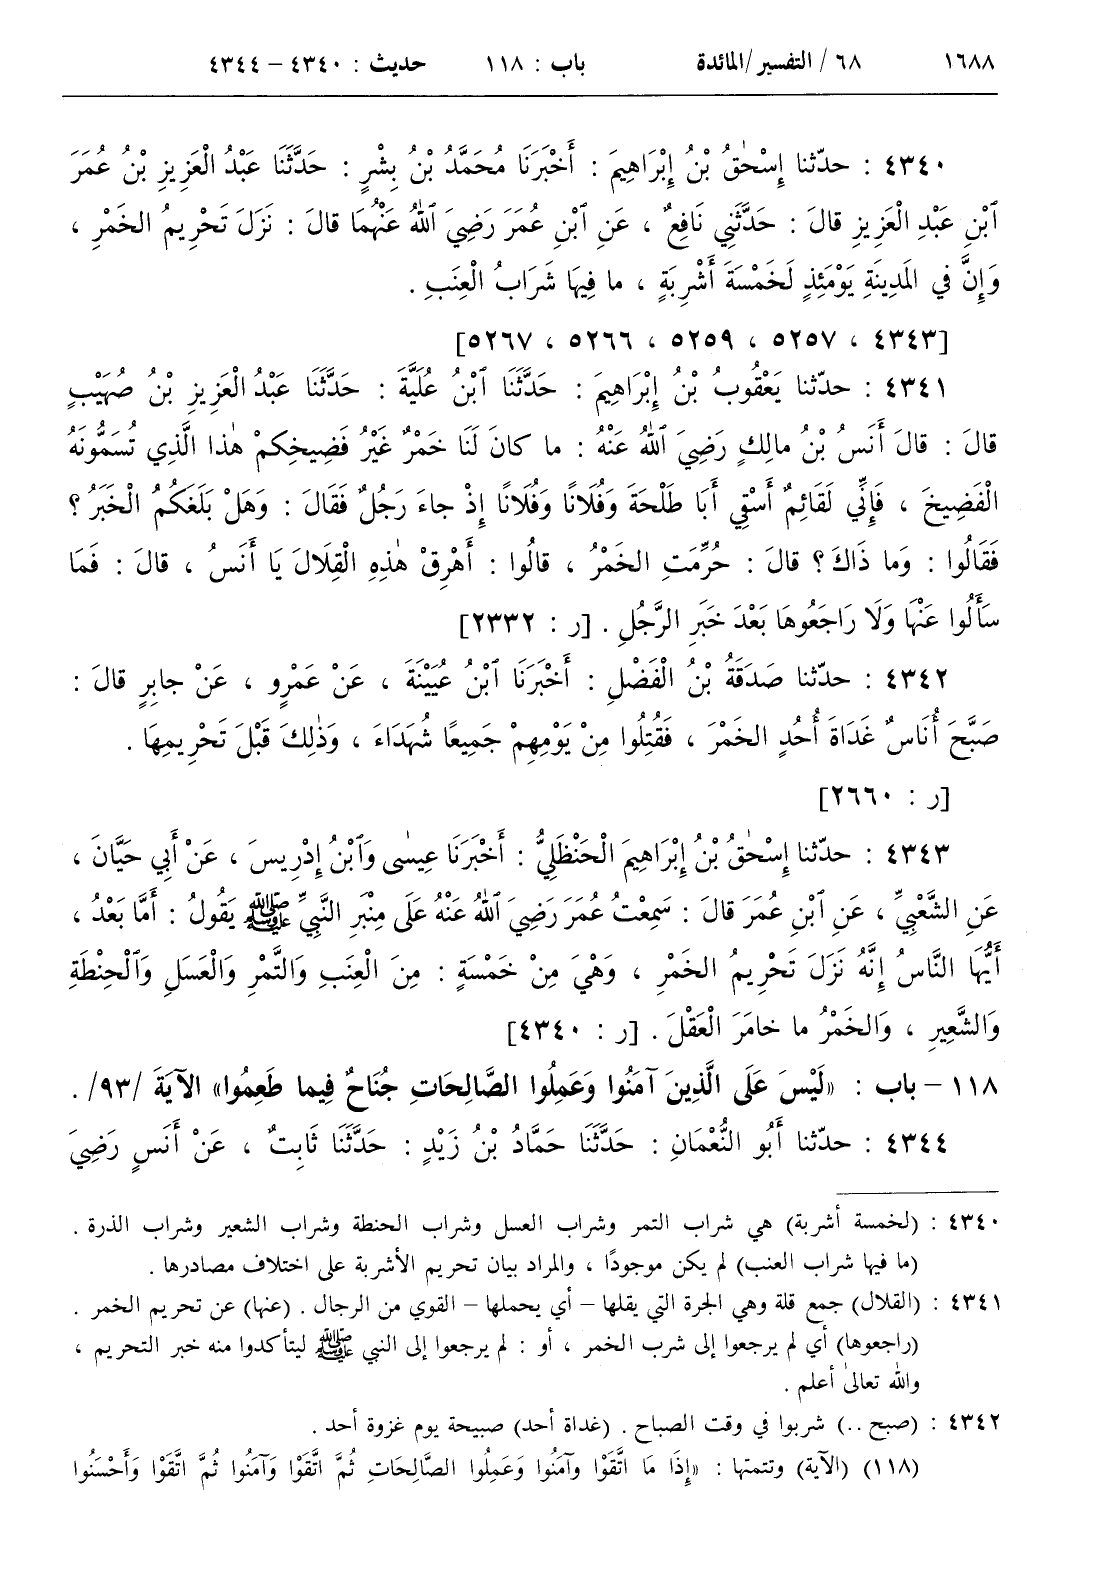 ١٦٨٨ ٦٨ / التفسير/المائدة باب : ١١٨ حديث : ٤٣٤٠ – ٤٣٤٤
٤٣٤٠ : حدّثنا إِسْحٰقُ بْنُ إِبْرَاهِيمَ : أَخْبَرَنَا مُحَمَّدُ بْنُ بِشْرٍ : حَدَّثَنَا عَبْدُ الْعَزِيزِ بْنُ عُمَرَ
ٱبْنِ عَبْدِ الْعَزِيزِ قالَ : حَدَّثَنِي نَافِعٌ ، عَنِ ٱبْنِ عُمَرَ رَضِيَ ٱللهُ عَنْهُمَا قالَ : نَزَلَ تَحْرِيمُ الخَمْرِ ،
وَإِنَّ فِي المَدِينَةِ يَوْمَئِذٍ لَخَمْسَةَ أَشْرِبَةٍ ، ما فِيهَا شَرَابُ الْعِنَبِ .
[٤٣٤٣ ، ٥٢٥٧ ، ٥٢٥٩ ، ٥٢٦٦ ، ٥٢٦٧]
٤٣٤١ : حدّثنا يَعْقُوبُ بْنُ إِبْرَاهِيمَ : حَدَّثَنَا ٱبْنُ عُلَيَّةَ : حَدَّثَنَا عَبْدُ الْعَزِيزِ بْنُ صُهَيْبٍ
قالَ : قالَ أَنَسُ بْنُ مالِكٍ رَضِيَ ٱللهُ عَنْهُ : ما كانَ لَنَا خَمْرٌ غَيْرُ فَضِيخِكمْ هٰذا الَّذِي تُسَمُّونَهُ
الْفَضِيخَ ، فَإِنِّي لَقَائِمٌ أَسْقِي أَبَا طَلْحَةَ وَفُلَانًا وَفُلَانًا إِذْ جاءَ رَجُلٌ فَقَالَ : وَهَلْ بَلَغَكُمُ الْخَبَرُ ؟
فَقَالُوا : وَما ذَاكَ ؟ قالَ : حُرِّمَتِ الخَمْرُ ، قالُوا : أَهْرِقْ هٰذِهِ الْقِلَالَ يَا أَنَسُ ، قالَ : فَمَا
سَأَلُوا عَنْهَا وَلَا رَاجَعُوهَا بَعْدَ خَبَرِ الرَّجُلِ . [ر : ٢٣٣٢]
٤٣٤٢ : حدّثنا صَدَقَةُ بْنُ الْفَضْلِ : أَخْبَرَنَا ٱبْنُ عُيَيْنَةَ ، عَنْ عَمْرٍو ، عَنْ جابِرٍ قالَ :
صَبَّحَ أُنَاسٌ غَدَاةَ أُحُدٍ الخَمْرَ ، فَقُتِلُوا مِنْ يَوْمِهِمْ جَمِيعًا شُهَدَاءَ ، وَذٰلِكَ قَبْلَ تَحْرِيمِهَا .
[ر : ٢٦٦٠]
٤٣٤٣ : حدّثنا إِسْحٰقُ بْنُ إِبْرَاهِيمَ الْحَنْظَلِيُّ : أَخْبَرَنَا عِيسٰى وَٱبْنُ إِدْرِيسَ ، عَنْ أَبِي حَيَّانَ ،
عَنِ الشَّعْبِيِّ ، عَنِ ٱبْنِ عُمَرَ قالَ : سَمِعْتُ عُمَرَ رَضِيَ ٱللهُ عَنْهُ عَلَى مِنْبَرِ النَّبِيِّ ﷺ يَقُولُ : أَمَّا بَعْدُ ،
أَيُّهَا النَّاسُ إِنَّهُ نَزَلَ تَحْرِيمُ الخَمْرِ ، وَهْيَ مِنْ خَمْسَةٍ : مِنَ الْعِنَبِ وَالتَّمْرِ وَالْعَسَلِ وَٱلْحِنْطَةِ
وَالشَّعِيرِ ، وَالخَمْرُ ما خامَرَ الْعَقْلَ . [ر : ٤٣٤٠]
١١٨ – باب : «لَيْسَ عَلَى الَّذِينَ آمَنُوا وَعَمِلُوا الصَّالِحَاتِ جُنَاحٌ فِيما طَعِمُوا» الآيَةَ /٩٣/ .
٤٣٤٤ : حدّثنا أَبُو النُّعْمَانِ : حَدَّثَنَا حَمَّادُ بْنُ زَيْدٍ : حَدَّثَنَا ثَابِتٌ ، عَنْ أَنَسٍ رَضِيَ
٤٣٤٠ : (لخمسة أشربة) هي شراب التمر وشراب العسل وشراب الحنطة وشراب الشعير وشراب الذرة .
(ما فيها شراب العنب) لم يكن موجودًا ، والمراد بيان تحريم الأشربة على اختلاف مصادرها .
٤٣٤١ : (القلال) جمع قلة وهي الجرة التي يقلها – أي يحملها – القوي من الرجال . (عنها) عن تحريم الخمر .
(راجعوها) أي لم يرجعوا إلى شرب الخمر ، أو : لم يرجعوا إلى النبي ﷺ ليتأكدوا منه خبر التحريم ،
والله تعالىٰ أعلم .
٤٣٤٢ : (صبح ..) شربوا في وقت الصباح . (غداة أحد) صبيحة يوم غزوة أحد .
(١١٨) (الآية) وتتمتها : «إِذَا مَا اتَّقَوْا وآمَنُوا وَعَمِلُوا الصَّالِحَاتِ ثُمَّ اتَّقَوْا وَآمَنُوا ثُمَّ اتَّقَوْا وَأَحْسَنُوا